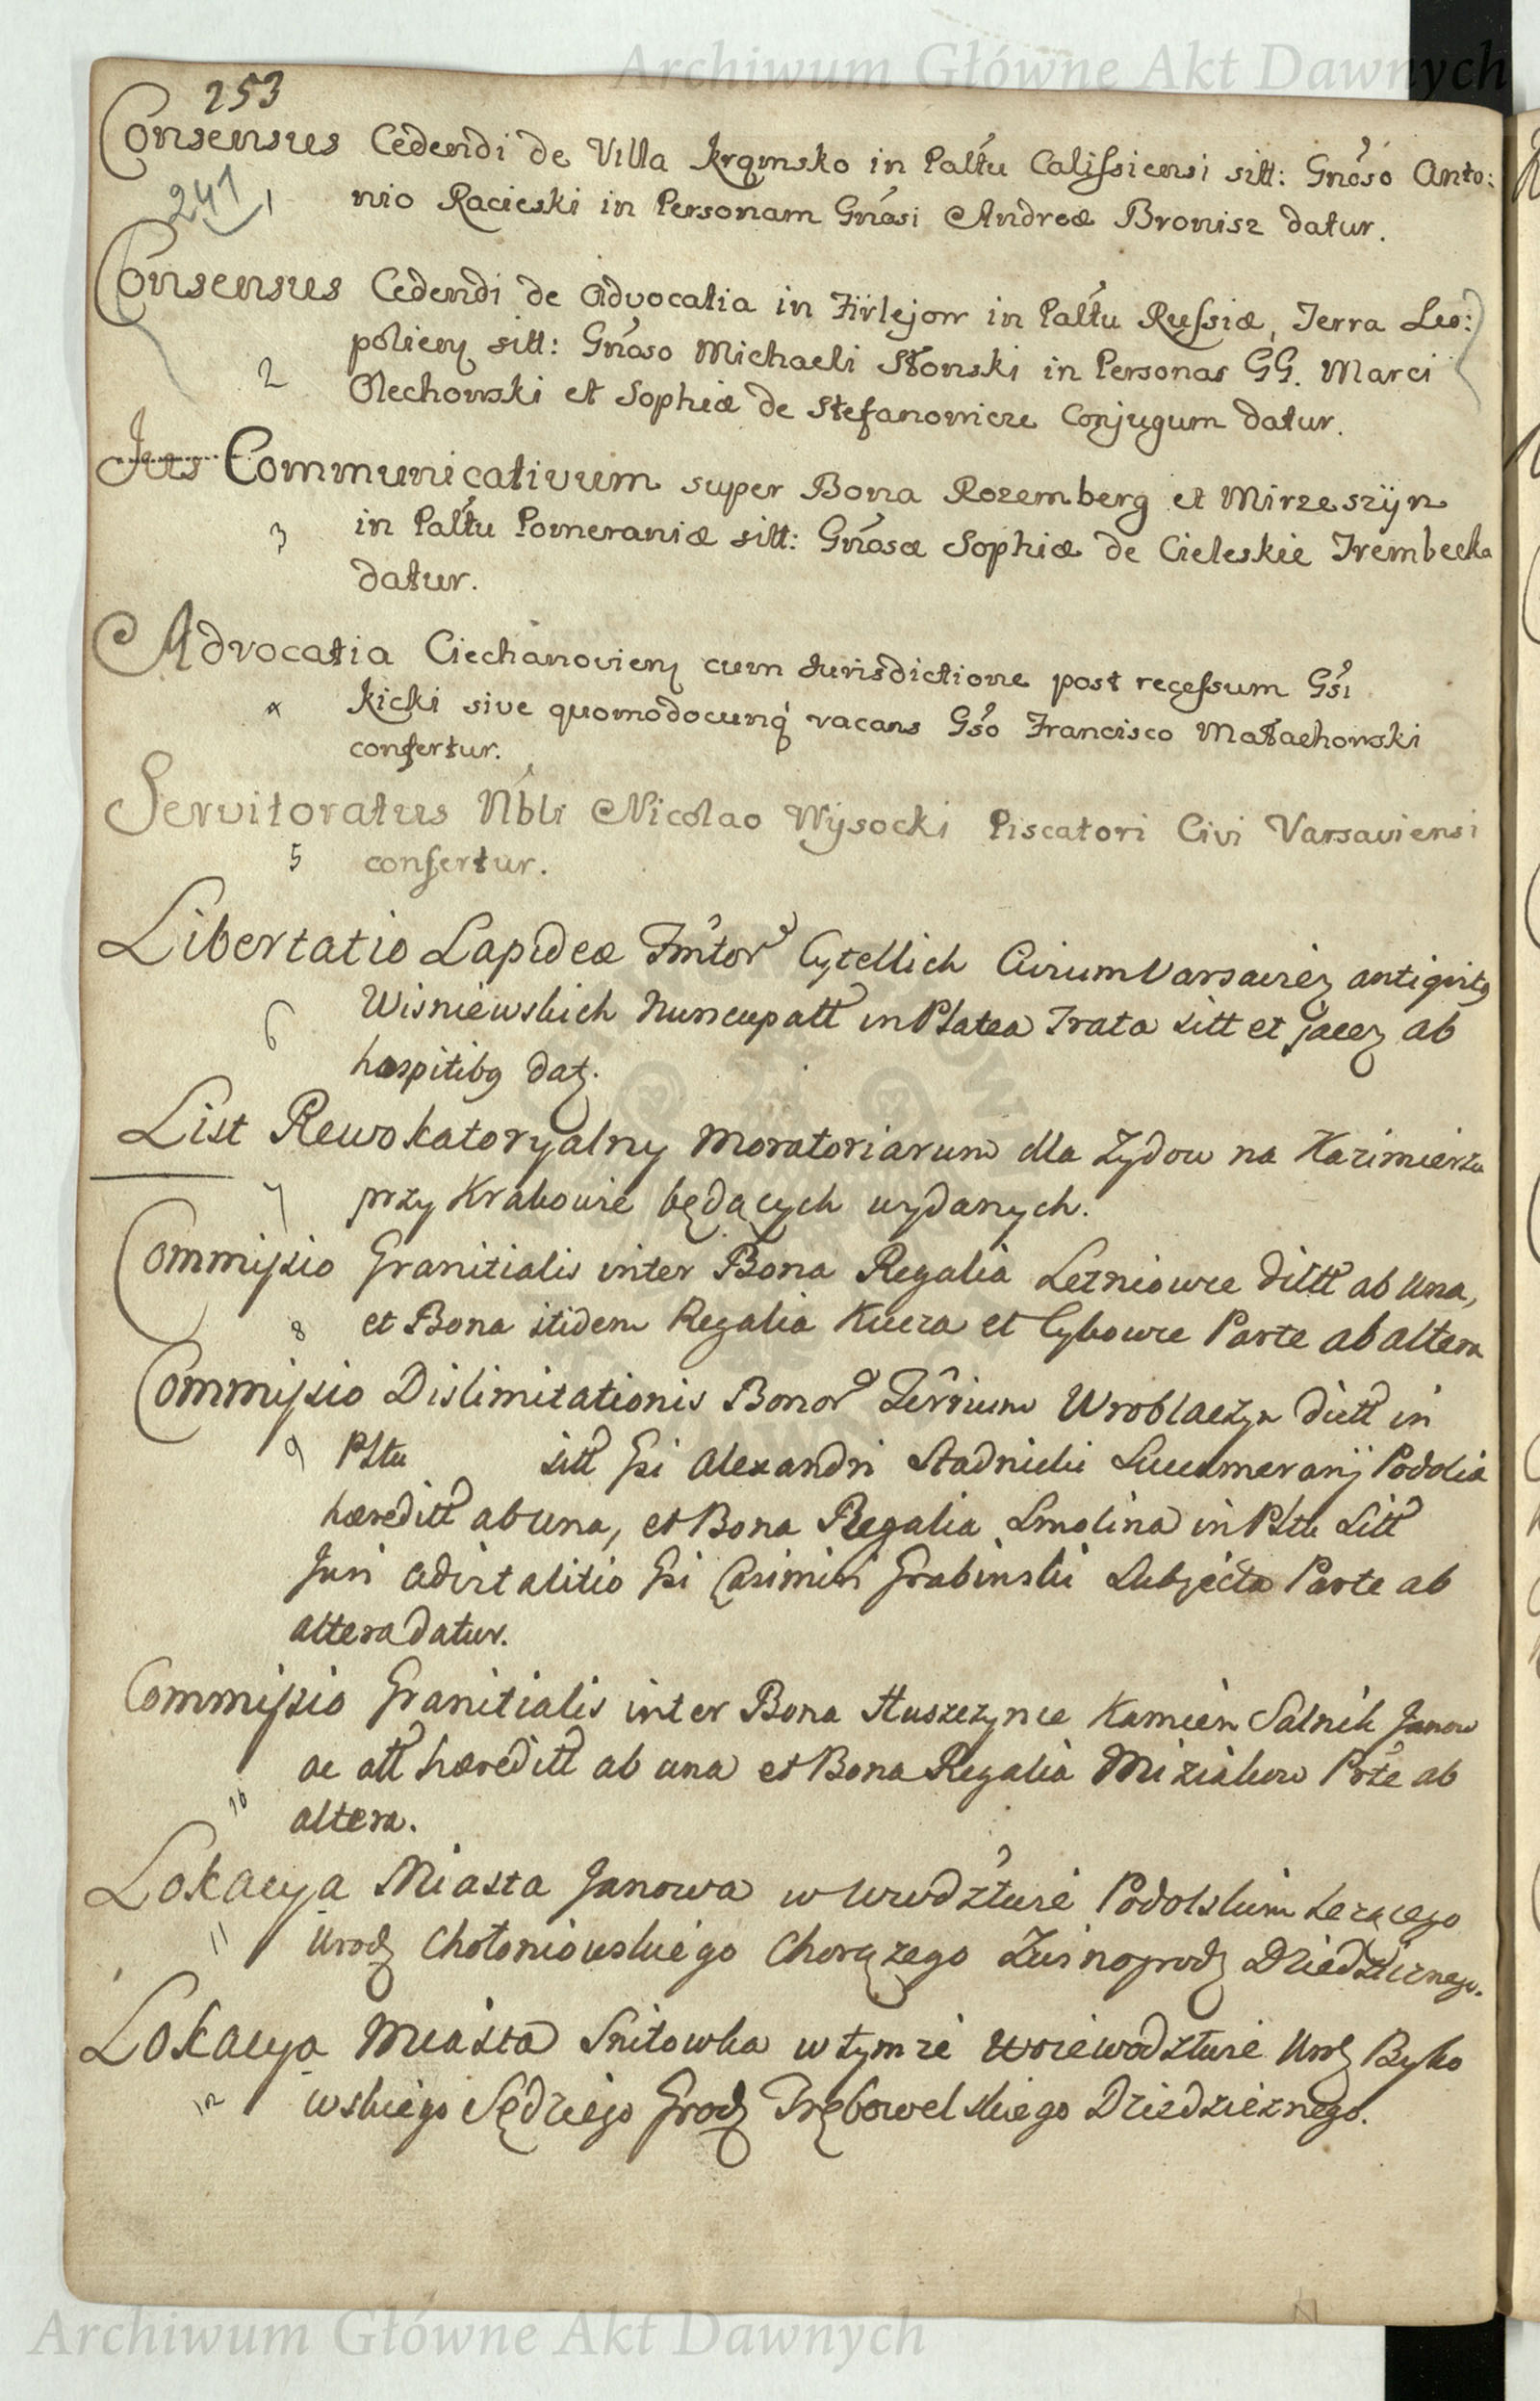 Archiwum Główne Akt Dawnych
253
Consensus Cedendi de Villa Krąmsko in Palttu Calissiensi sitt: Gnoso Anto:
241 1 nio Racieski in Personam Gnosi Andreæ Bronisz datur.
Consensus Cedendi de Advocatia in Firlejow in Palttu Russiæ, Terra Leo:
polien sitt: Gnoso Michaeli Słonski in Personas GG. Marci
2 Olechowski et Sophiæ de Stefanowicze Conjugum datur.
Jus Communicativum super Bona Rozemberg et Mirzeszÿn
3 in Palttu Pomeraniæ sitt: Gnosæ Sophiæ de Cieleskie Trembecka
datur.
Advocatia Ciechanovien cum Jurisdictione post recessum Gsi
4 Kicki sive quomodocunq vacans Gso Francisco Małachowski
confertur.
Servitoratus Nbli Nicolao Wÿsocki Piscatori Civi Varsaviensi
5 confertur.
Libertatio Lapideæ Fmtor Cytellich Civium Varsavien antiquits
6 Wisniewskich Nuncupatt in Platea Trata sitt et jacen ab
hospitibg datz.
List Rewokatoryalny Moratoriarum dla Zydow na Kazimierzu
7 przy Krakowie będących wydanych.
Commissio Granitialis inter Bona Regalia Lezniowce dictt ab una,
8 et Bona itidem Regalia Kucza et Cybowce Parte ab altera
Commissio Dislimitationis Bonor Terrium Wroblaczyn dictt in
9 Pltu sitt Gsi Alexandri Stadnicki Succamerarij Podolia
hæreditt ab una, et Bona Regalia Smolina in Pltu Sitt
Juri Advitalitio Gsi Casimiri Grabinski Subjecta Parte ab
altera datur.
Commissio Granitialis inter Bona Huszczynce Kamien Salnik Janow
10 ac att hæreditt ab una et Bona Regalia Miziakow Prte ab
altera.
Lokacya Miasta Janowa w Wwdztwie Podolskim Lezącego
11 Urodz Chołoniowskiego Chorązego Zwinogrodz Dziedzicznego.
Lokacya Miasta Snitowka w tymze Woiewodztwie Urodz Byko
12 wskiego Sędziego Grodz Trębowelskiego Dziedzicznego.
Archiwum Główne Akt Dawnych